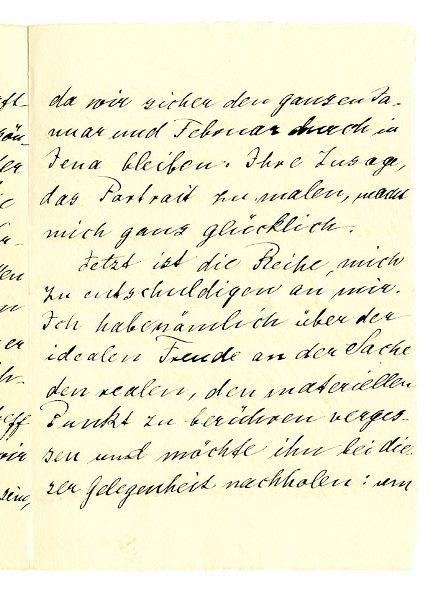 da wir sicher den ganzen Ja-
nuar und Februar durch in
Jena bleiben. Ihre Zusage,
das Portrait zu malen, macht
mich ganz glücklich.
Jetzt ist die Reihe, mich
zu entschuldigen an mir.
Ich habe nämlich über der
idealen Freude an der Sache
den realen, den materiellen
Punkt zu berühren verges-
sen und möchte ihn bei die-
ser Gelegenheit nachholen: um